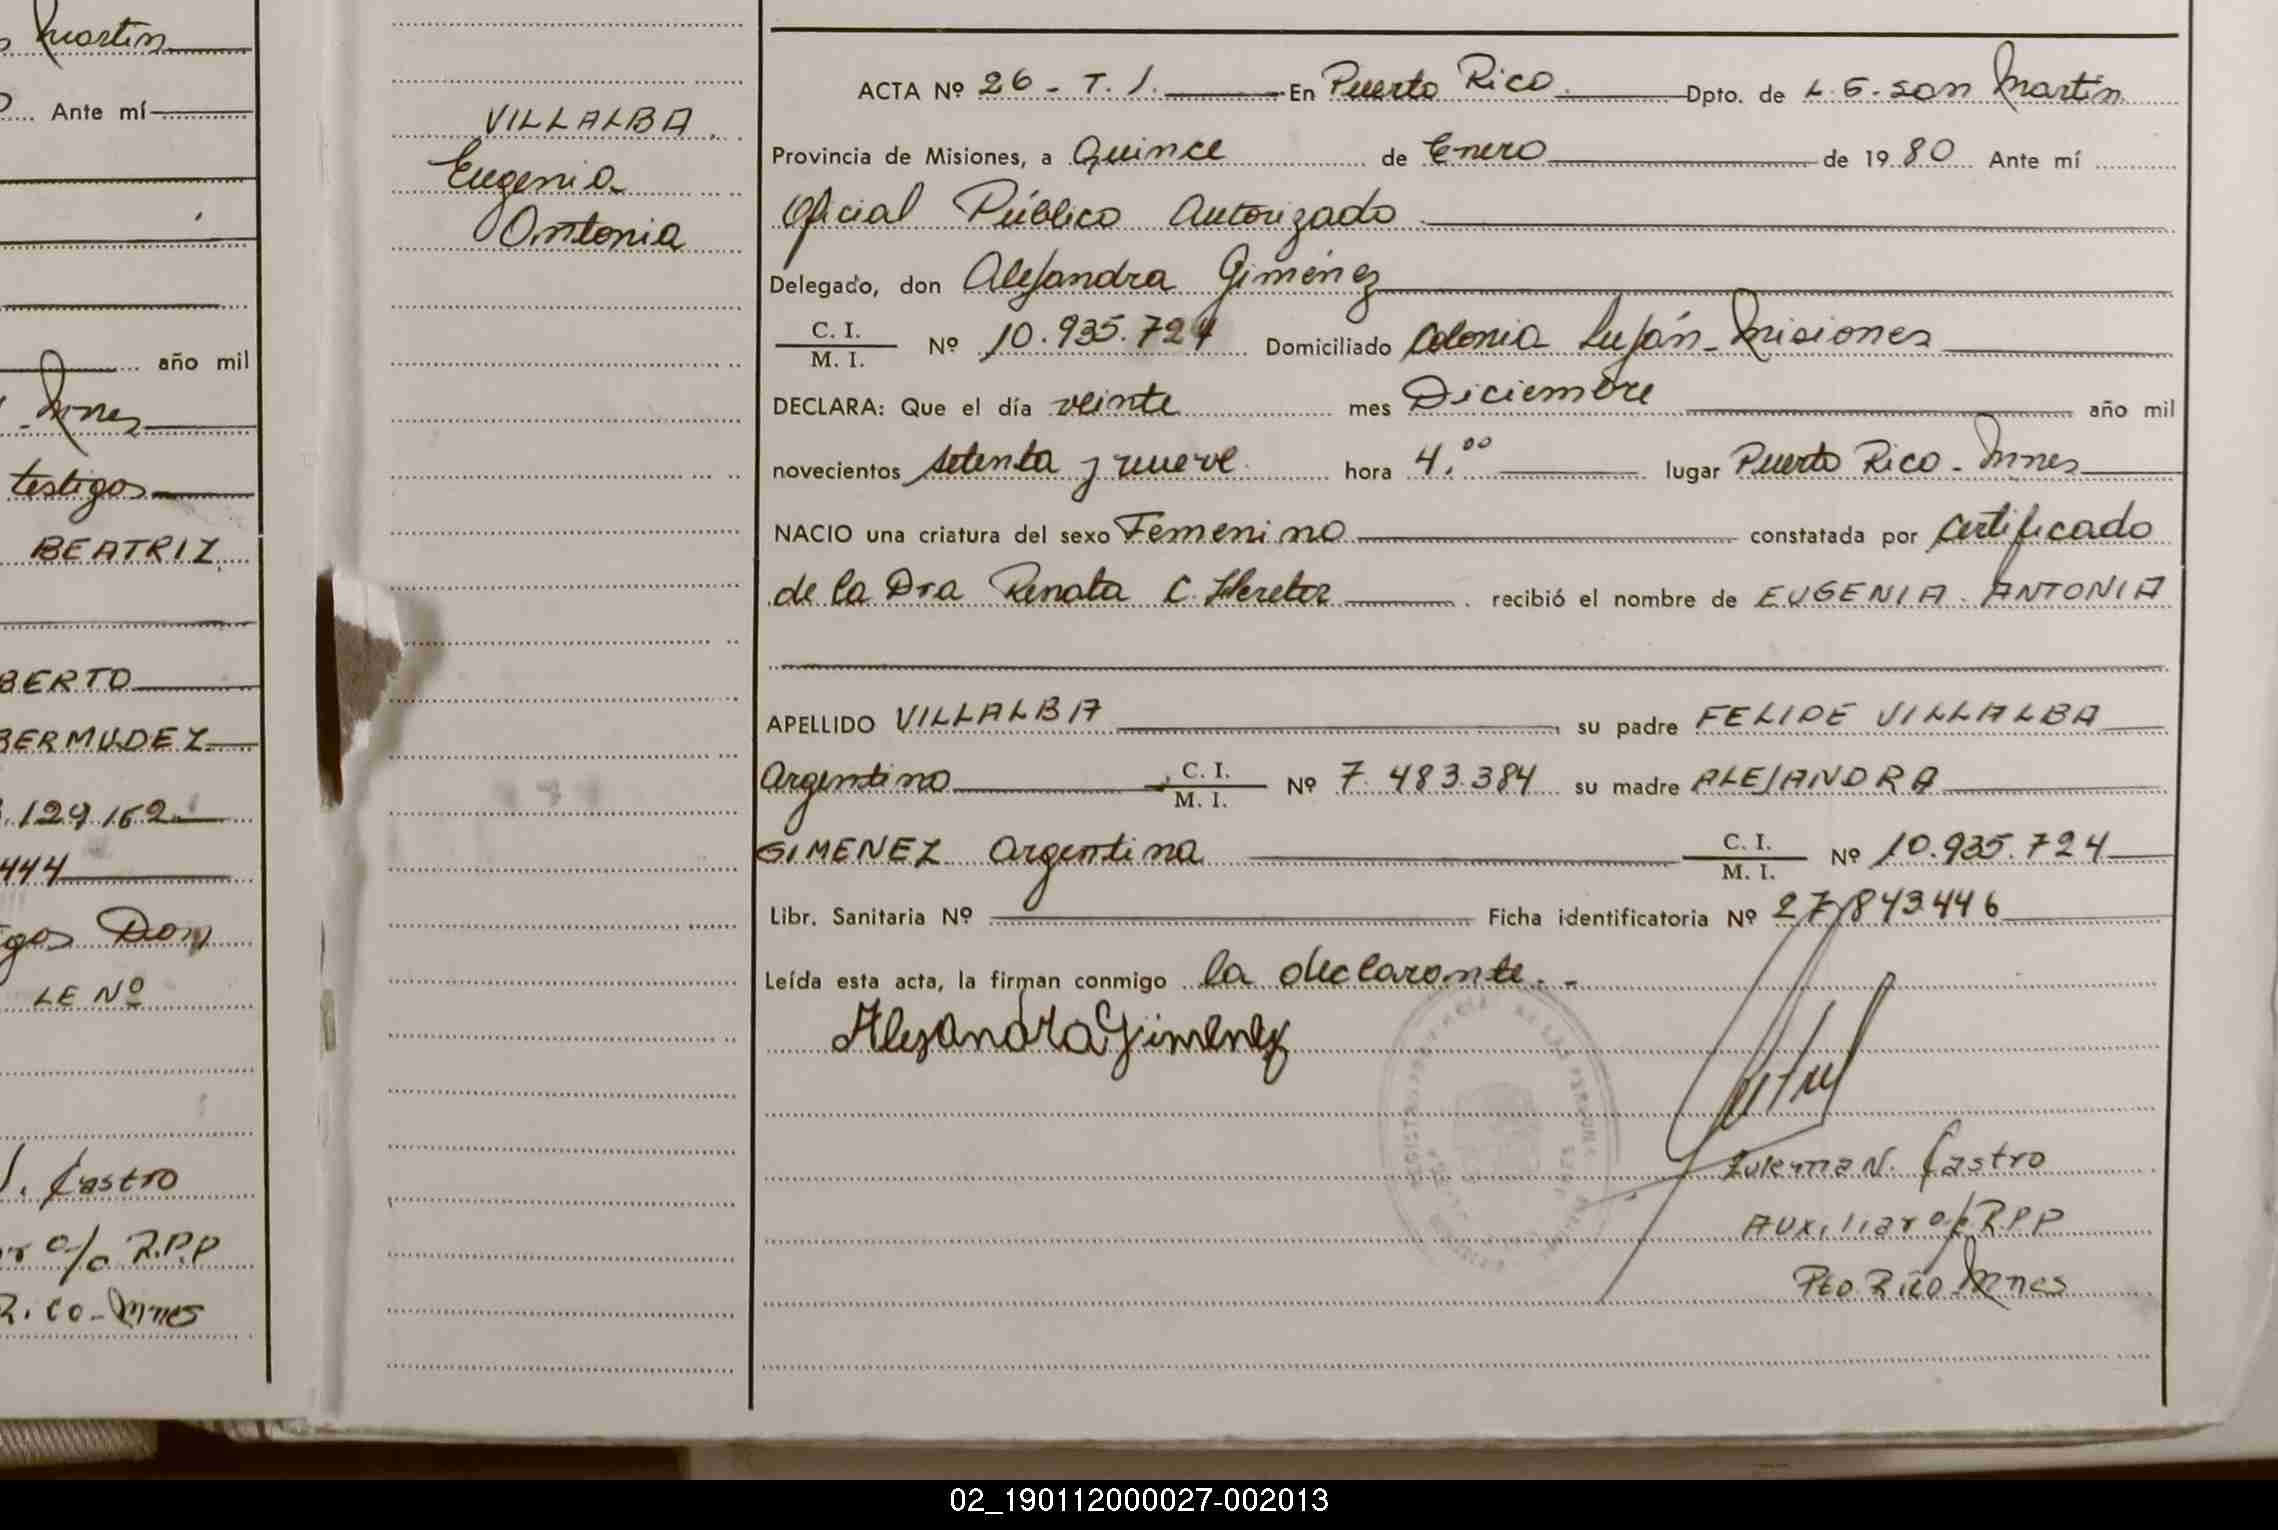 Martín
Ante mí
año mil
Mnes
testigos
BEATRIZ
BERTO
BERMUDEZ
129162
444
Don
LE Nº
Castro
o/c R.P.P
Mnes
VILLALBA
Eugenia
Antonia
ACTA Nº 26 - T. I. En Puerto Rico Dpto. de L. G. San Martín
Provincia de Misiones, a Quince de Enero de 1980 Ante mí
Oficial Público Autorizado
Delegado, don Alejandra Giménez
C. I.
M. I. Nº 10.935.724 Domiciliado Colonia Luján - Misiones
DECLARA: Que el día veinte mes Diciembre año mil
novecientos setenta y nueve hora 4.00 lugar Puerto Rico - Mnes
NACIO una criatura del sexo Femenino constatada por certificado
de la Dra Renata C. recibió el nombre de EUGENIA ANTONIA
APELLIDO VILLALBA su padre FELIPE VILLALBA
Argentino C. I.
M. I. Nº 7.483.384 su madre ALEJANDRA
GIMENEZ Argentina C. I.
M. I. Nº 10.935.724
Libr. Sanitaria Nº Ficha identificatoria Nº 27843446
Leída esta acta, la firman conmigo la declarante. -
Alejandra Giménez
Zulema N. Castro
Auxiliar o/c R.P.P
Pto Rico Mnes
02_190112000027-002013